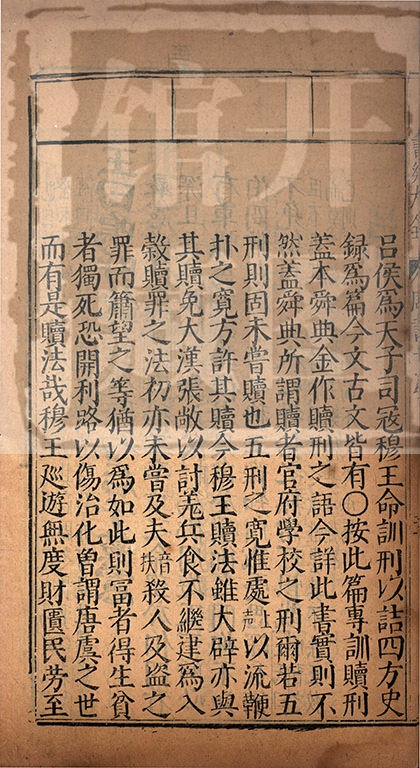 呂侯爲天子司寇穆王命訓刑以詰四方史
録爲篇今文古文皆有○按此篇專訓贖刑
蓋本舜典金作贖刑之語今詳此書實則不
然蓋舜典所謂贖者官府學校之刑爾若五
刑則固未嘗贖也五刑之寬惟處上声以流鞭
扑之寬方許其贖今穆王贖法雖大辟亦與
其贖免矣漢張敞以討羌兵食不繼建爲入
穀贖罪之法初亦未嘗及夫音扶殺人及盗之
罪而蕭望之等猶以爲如此則富者得生貧
者獨死恐開利路以傷治化曽謂唐虞之世
而有是贖法哉穆王廵遊無度財匱民劳至
馆开